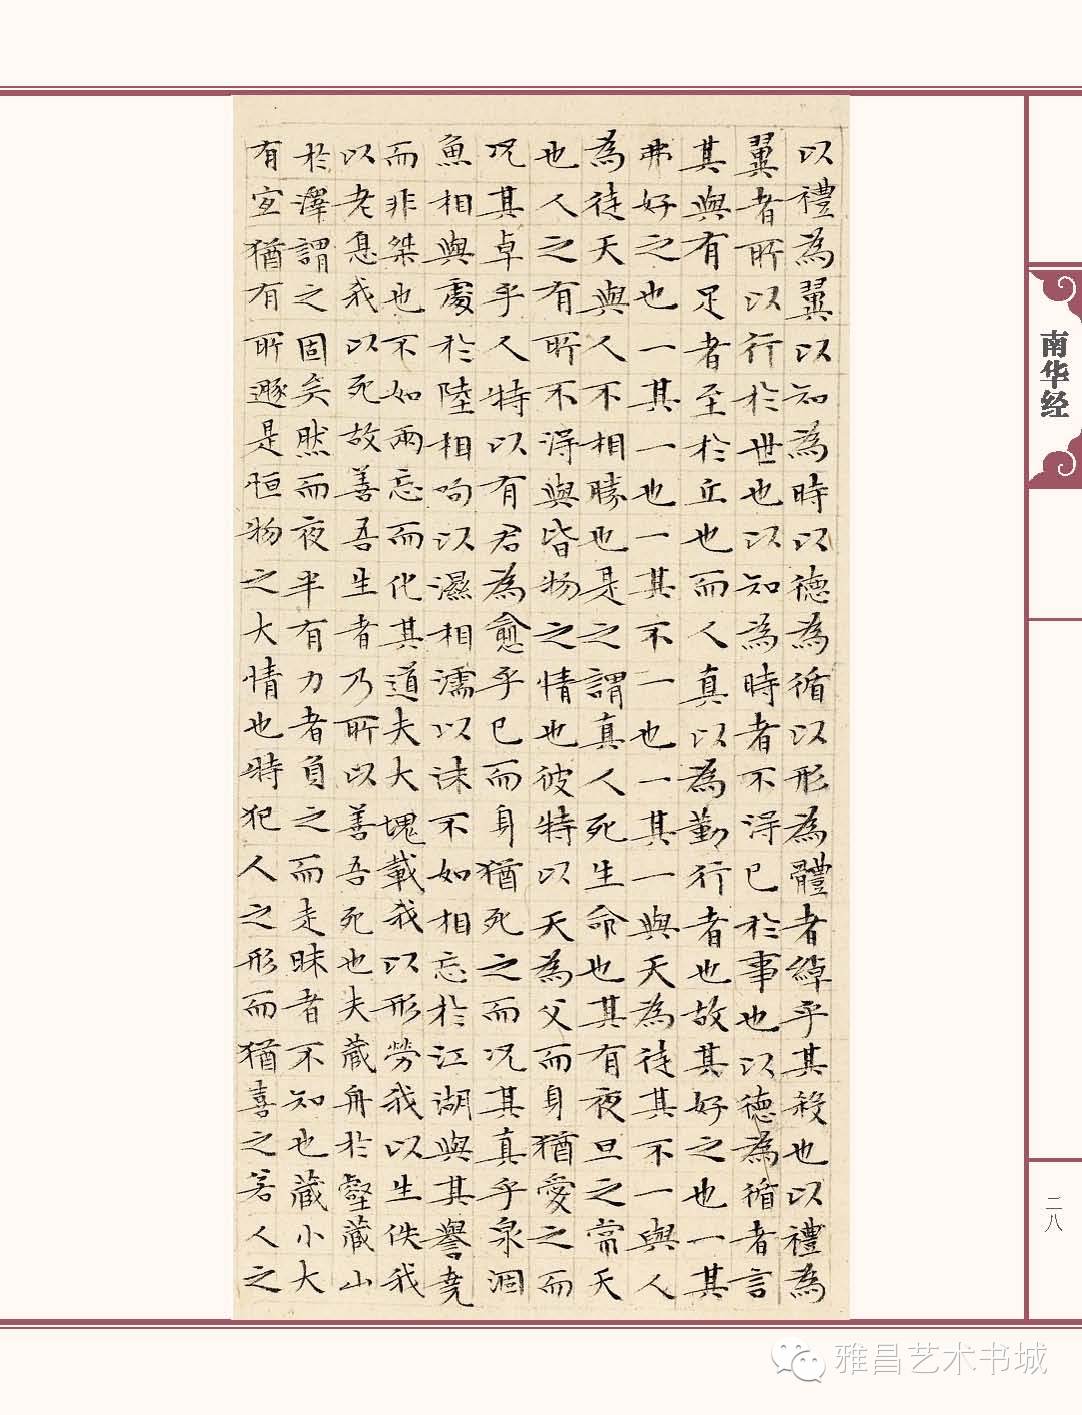 以禮為翼以知為時以德為循以形為體者綽乎其殺也以禮為
翼者所以行於世也以知為時者不得已於事也以德為循者言
其與有足者至於丘也而人真以為勤行者也故其好之也一其
弗好之也一其一也一其不一也一其一與天為徒其不一與人
為徒天與人不相勝也是之謂真人死生命也其有夜旦之常天
也人之有所不得與皆物之情也彼特以天為父而身猶愛之而
况其卓乎人特以有君為愈乎已而身猶死之而况其真乎泉涸
魚相與處於陸相呴以濕相濡以沫不如相忘於江湖與其譽堯
而非桀也不如兩忘而化其道夫大塊載我以形勞我以生佚我
以老息我以死故善吾生者乃所以善吾死也夫藏舟於壑藏山
於澤謂之固矣然而夜半有力者負之而走昧者不知也藏小大
有宜猶有所遯是恒物之大情也時犯人之形而猶喜之若人之
南华经
二八
雅昌艺术书城